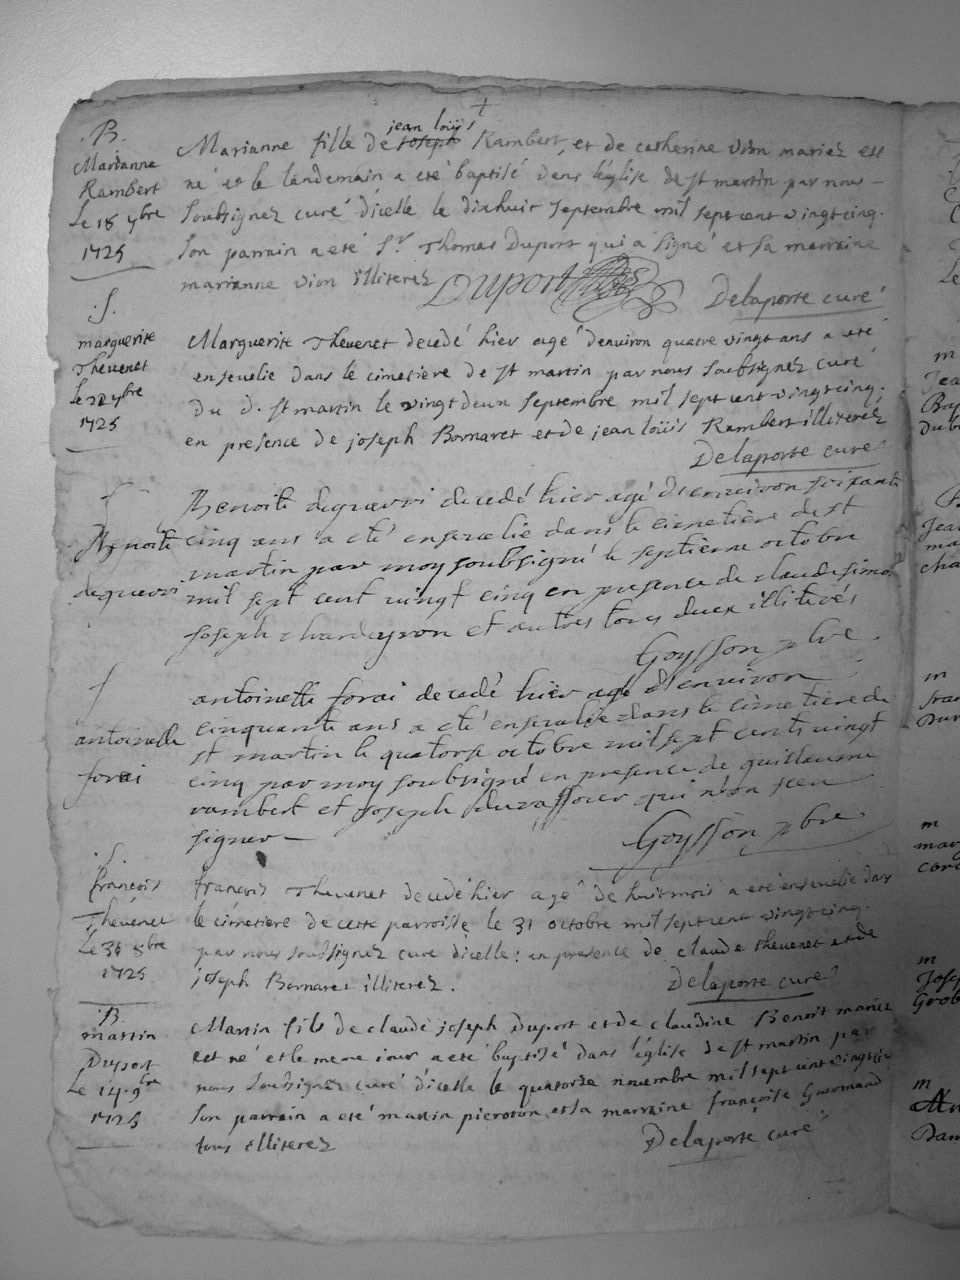 .B.
Marianne
Rambert
Le 18 7bre
1725
jean loüis
Marianne fille de joseph Rambert, et de catherine vion mariez est
né et le landemain a eté baptisé dans l'église de st martin par nous
soubsignez curé d'icelle le dixhuit septembre mil sept cent vingt cinq.
son parrain a eté Sr Thomas Duport qui a signé et sa marraine
marianne vion illiterez Duport Delaporte curé
.S.
marguerite
Thevenet
le 22 7bre
1725
Marguerite Thevenet decedé hier agé d'environ quatre vingt ans a eté
ensevelie dans le cimetiere de st martin par nous soubsignez curé
du d. st martin le vingt deux septembre mil sept cent vingt cinq.
en presence de joseph Bornaret et de jean loüis Rambert illiterez
Delaporte curé
S
Benoite
deguevri
Benoite deguevri decedé hier agé d'environ soixante
cinq ans a eté ensevelie dans le cimetière de st
martin par moy soubsigné le septieme octobre
mil sept cent vingt cinq en presence de claude simon
joseph chardeyron et autres tous deux illiterés
Goysson pbre
S
antoinette
forai
antoinette forai decedé hier agé d'environ
cinquante ans a eté ensevelie dans le cimetière de
st martin le quatorse octobre mil sept cents vingt
cinq par moy soubsigné en presence de guillaume
rambert et joseph duvassour qui n'on sceu
signer Goysson pbre
.S.
françois
Thevenet
Le 31 8bre
1725
françois Thevenet decedé hier agé de huit mois a eté ensevelie dans
le cimetiere de cette parroisse le 31 octobre mil sept cent vingt cinq.
par nous soubsignez curé d'icelle: en presence de claude thevenet et de
joseph Bornaret illiterez. Delaporte curé
.B.
martin
Duport
Le 14 9bre
1725
Martin fils de claude joseph Duport et de claudine Benoit mariez
est né et le meme iour a eté baptisé dans l'église de st martin par
nous soubsignez curé d'icelle le quatorze novembre mil sept cent vingt cinq
son parrain a eté martin picroton et sa marraine françoise Gurmand
tous illiterez Delaporte curé